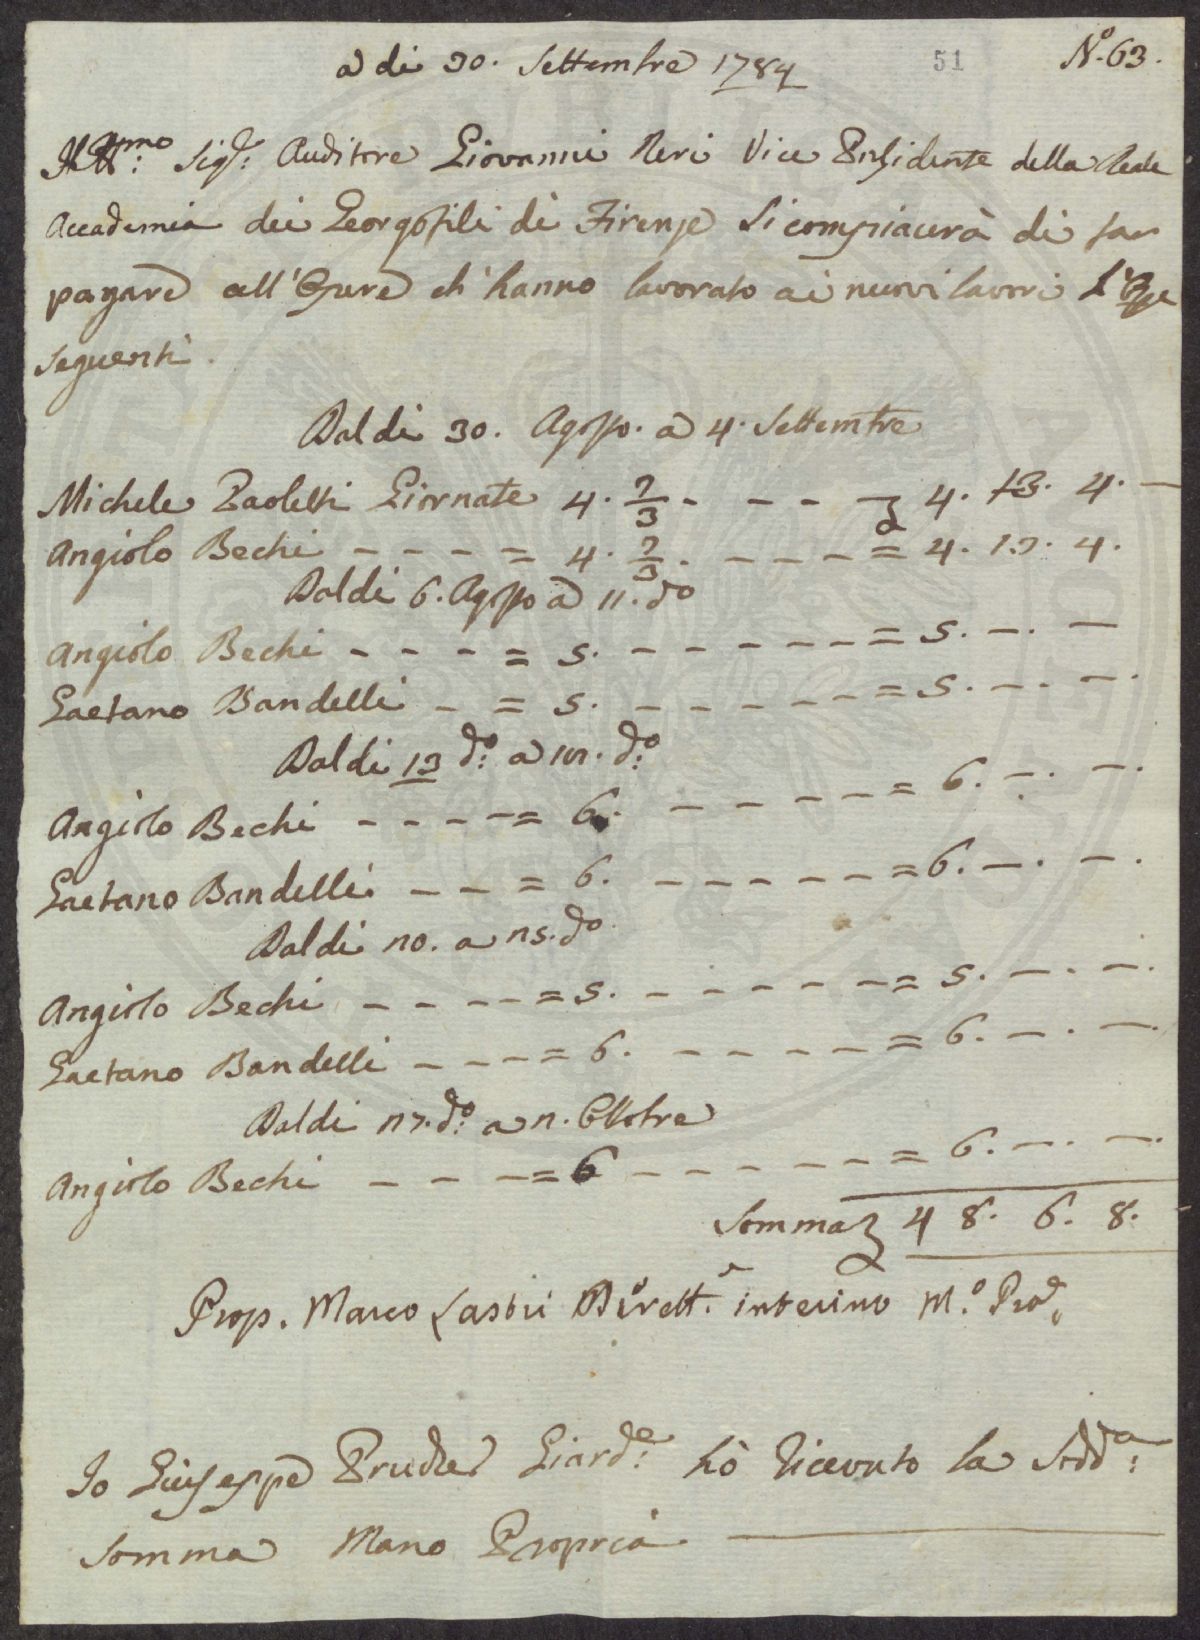 a di 30. Settembre 1784
51
N.º 63.
Ill.mo Sig.r Auditore Giovanni Neri Vice Presidente della Reale
Accademia dei Georgofili di Firenze Si compiacerà di far
pagare all'Opere ch'hanno lavorato ai nuovi lavori l'Opre
seguenti.
Daldi 30. Agosto. a 4. Settembre
Michele Paoletti Giornate 4. 2/3 - - - £ 4. 13. 4. —
Angiolo Bechi - - - - = 4. 2/3. - - - - = 4. 13. 4.
Daldi 6. Agosto a 11. do
Angiolo Bechi - - - - = 5. - - - - - - = 5. —. —
Gaetano Bandelli - = 5. - - - - - = 5. —. —.
Daldi 13 d.º a 18. d.º
Angiolo Bechi - - - - = 6. - - - - - = 6. —. —.
Gaetano Bandelli - - - = 6. - - - - - = 6. —. —.
Daldi 20. a 25. do
Angiolo Bechi - - - - = 5. - - - - - - = 5. —. —.
Gaetano Bandelli - - - - = 6. - - - - - = 6. —. —.
Daldi 27. d.º a 2. Ottobre
Angiolo Bechi - - - - = 6 - - - - - - = 6. —. —.
Somma £ 48. 6. 8.
Prop. Marco Lastri Dirett.e interino M.º Pro.
Io Giuseppe Prucker Giard.e hò Ricevuto la Sudd.a
Somma Mano Propria —